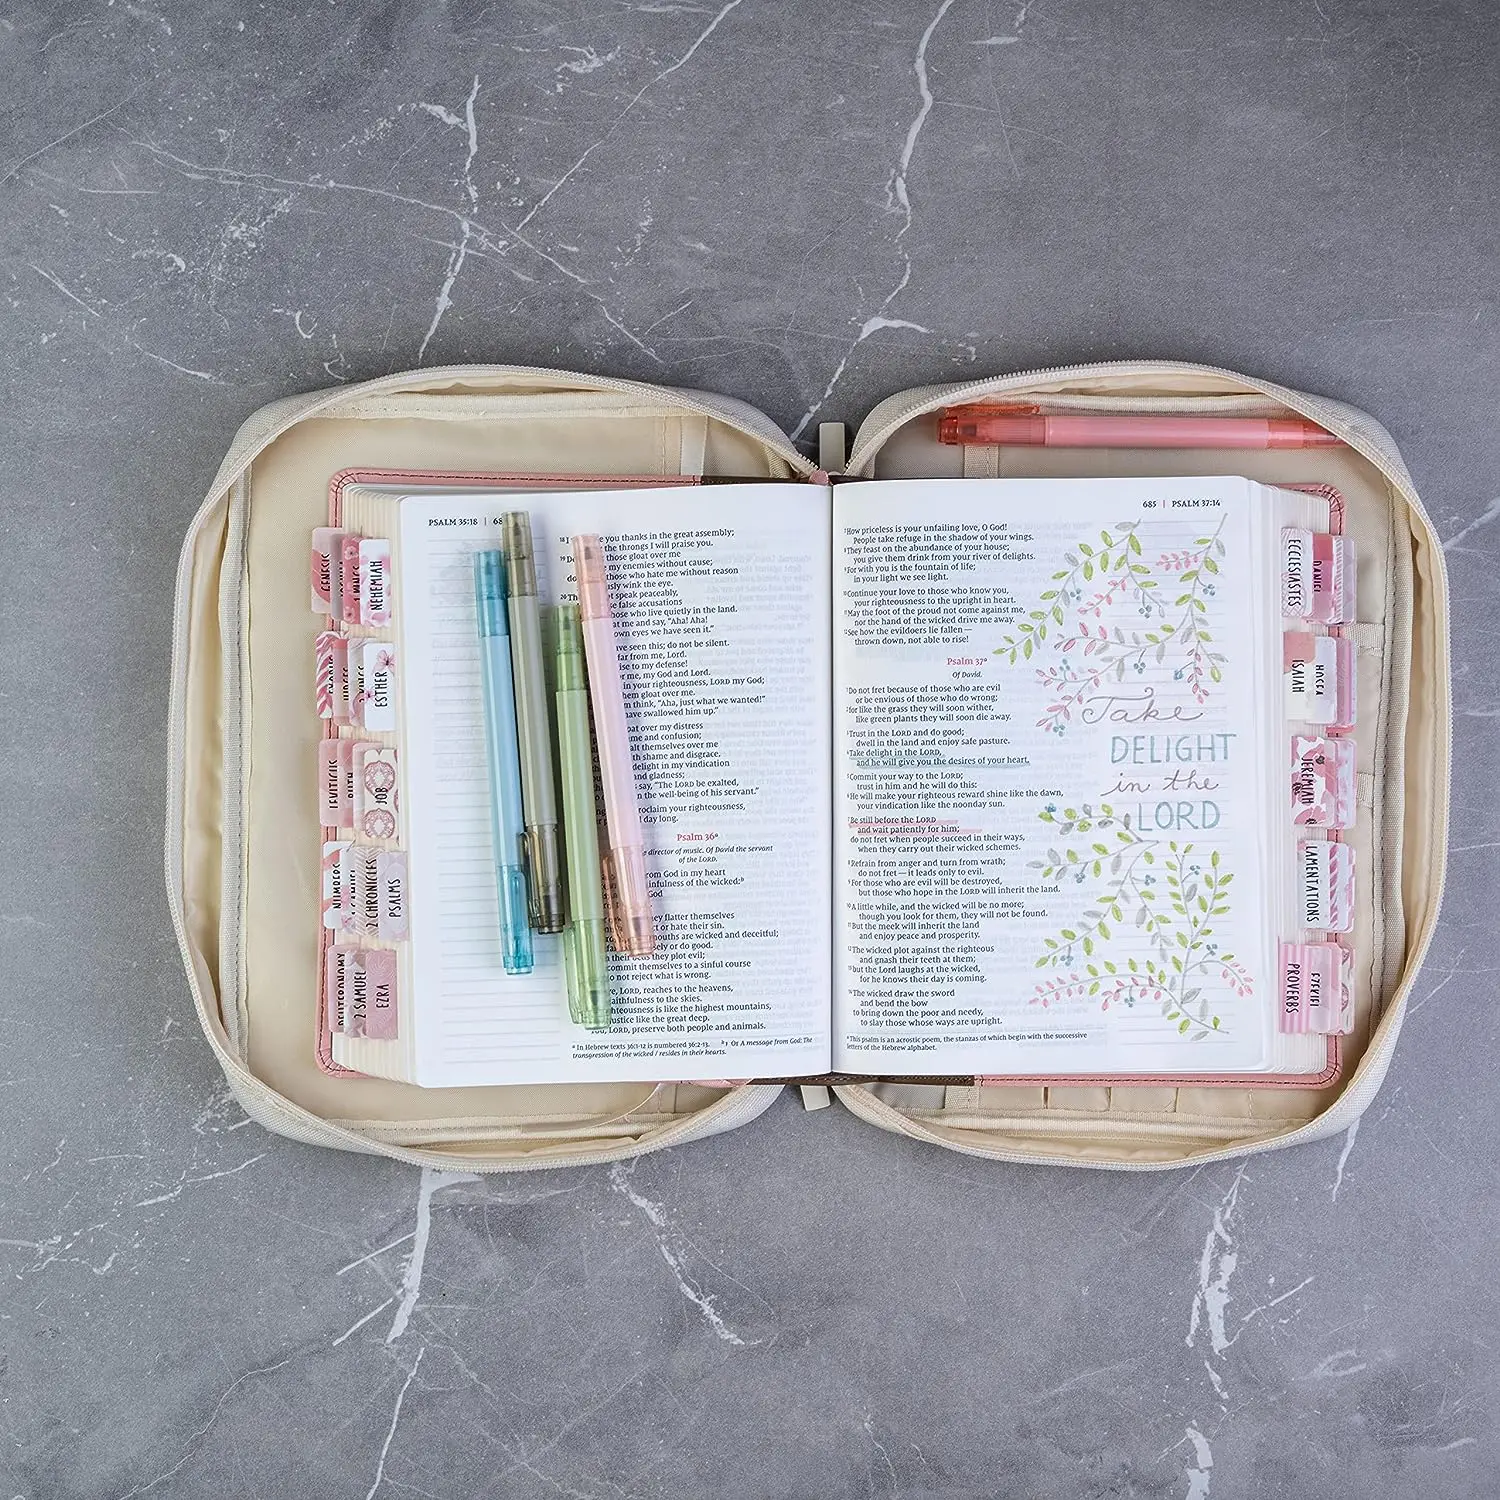 PSALM 35:18 | 68
you thanks in the great assembly;
the throngs I will praise you.
those gloat over me
my enemies without cause;
those who hate me without reason
wink the eye.
speak peaceably,
false accusations
those who live quietly in the land.
at me and say, “Aha! Aha!
own eyes we have seen it.”
have seen this; do not be silent.
far from me, Lord.
to my defense!
for me, my God and Lord.
in your righteousness, LORD my God;
them gloat over me.
think, “Aha, just what we wanted!”
have swallowed him up.”
gloat over my distress
me and confusion;
themselves over me
with shame and disgrace.
delight in my vindication
and gladness;
say, “The LORD be exalted,
in the well-being of his servant.”
proclaim your righteousness,
day long.
Psalm 36ᵃ
director of music. Of David the servant
of the LORD.
from God in my heart
sinfulness of the wicked:ᵇ
God
they flatter themselves
or hate their sin.
mouths are wicked and deceitful;
or do good.
beds they plot evil;
commit themselves to a sinful course
do not reject what is wrong.
LORD, reaches to the heavens,
faithfulness to the skies.
righteousness is like the highest mountains,
justice like the great deep.
LORD, preserve both people and animals.
ᵃ In Hebrew texts 36:1-12 is numbered 36:2-13. ᵇ 1 Or A message from God: The
transgression of the wicked / resides in their hearts.
685 | PSALM 37:14
7 How priceless is your unfailing love, O God!
People take refuge in the shadow of your wings.
8 They feast on the abundance of your house;
you give them drink from your river of delights.
9 For with you is the fountain of life;
in your light we see light.
10 Continue your love to those who know you,
your righteousness to the upright in heart.
11 May the foot of the proud not come against me,
nor the hand of the wicked drive me away.
12 See how the evildoers lie fallen —
thrown down, not able to rise!
Psalm 37ᵃ
Of David.
1 Do not fret because of those who are evil
or be envious of those who do wrong;
2 for like the grass they will soon wither,
like green plants they will soon die away.
3 Trust in the LORD and do good;
dwell in the land and enjoy safe pasture.
4 Take delight in the LORD,
and he will give you the desires of your heart.
5 Commit your way to the LORD;
trust in him and he will do this:
6 He will make your righteous reward shine like the dawn,
your vindication like the noonday sun.
7 Be still before the LORD
and wait patiently for him;
do not fret when people succeed in their ways,
when they carry out their wicked schemes.
8 Refrain from anger and turn from wrath;
do not fret — it leads only to evil.
9 For those who are evil will be destroyed,
but those who hope in the LORD will inherit the land.
10 A little while, and the wicked will be no more;
though you look for them, they will not be found.
11 But the meek will inherit the land
and enjoy peace and prosperity.
12 The wicked plot against the righteous
and gnash their teeth at them;
13 but the Lord laughs at the wicked,
for he knows their day is coming.
14 The wicked draw the sword
and bend the bow
to bring down the poor and needy,
to slay those whose ways are upright.
ᵃ This psalm is an acrostic poem, the stanzas of which begin with the successive
letters of the Hebrew alphabet.
Take
DELIGHT
in the
LORD
GENESIS
NEHEMIAH
ESTHER
LEVITICUS
RUTH
JOB
NUMBERS
2 CHRONICLES
PSALMS
DEUTERONOMY
2 SAMUEL
EZRA
ECCLESIASTES
DANIEL
ISAIAH
HOSEA
JEREMIAH
LAMENTATIONS
PROVERBS
EZEKIEL